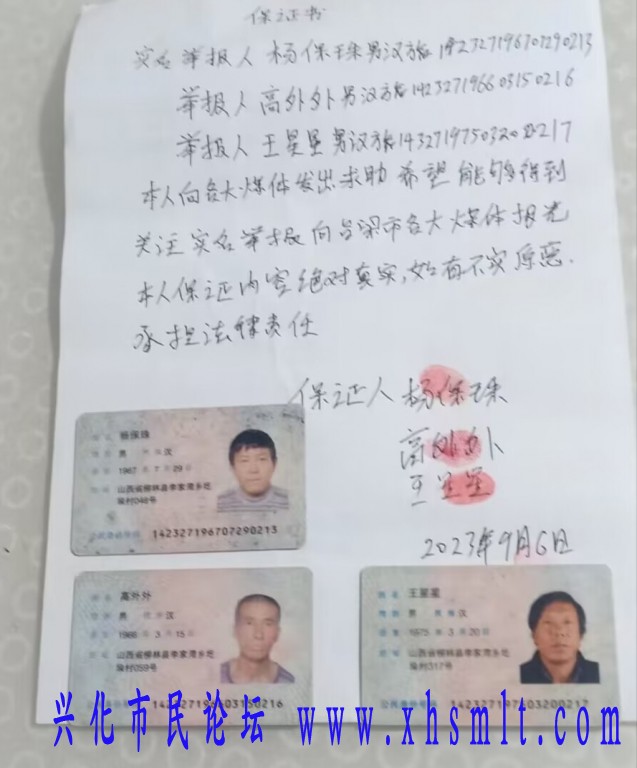 保证书
实名举报人杨保珠男汉族142327196707290213
举报人高外外男汉族142327196603150216
举报人王星星男汉族142327197503200217
本人向各大煤体发出求助 希望能够得到
关注 实名举报向吕梁市各大煤体报光
本人保证内容绝对真实,如有不实原意.
承担法律责任
保证人 杨保珠
高外外
王星星
2023年9月6日
姓名 杨保珠
性别 男 民族 汉
出生 1967 年 7 月 29 日
住址 山西省柳林县李家湾乡圪
垛村046号
公民身份号码 142327196707290213
高外外
男 民族 汉
1966 年 3 月 15 日
山西省柳林县李家湾乡圪
垛村059号
142327196603150216
王星星
男 民族 汉
1975 年 3 月 20 日
山西省柳林县李家湾乡圪
垛村317号
公民身份号码 142327197503200217
兴化市民论坛 www.xhsmlt.com